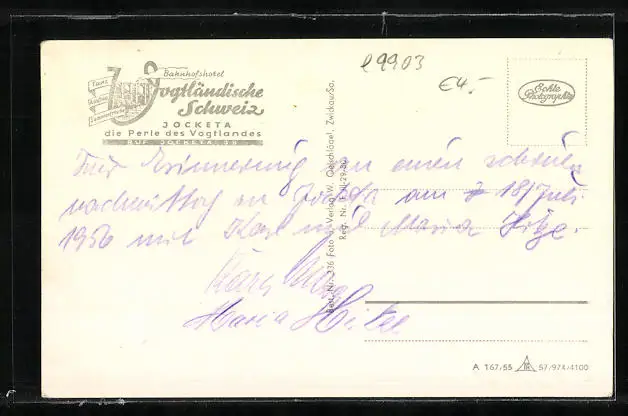 e9903
€4.-
Bahnhofshotel
Vogtländische
Schweiz
JOCKETA
die Perle des Vogtlandes
RUF: JOCKETA
Echte
Photographie
Zur Erinnerung an einen schönen
nachmittag in Jocketa am 18/Juli
1956 mit Karl und Maria
Maria
Best.-Nr. 336 Foto u. Verlag W. Oelschlägel, Zwickau/Sa.
A 167/55 57/974/4100